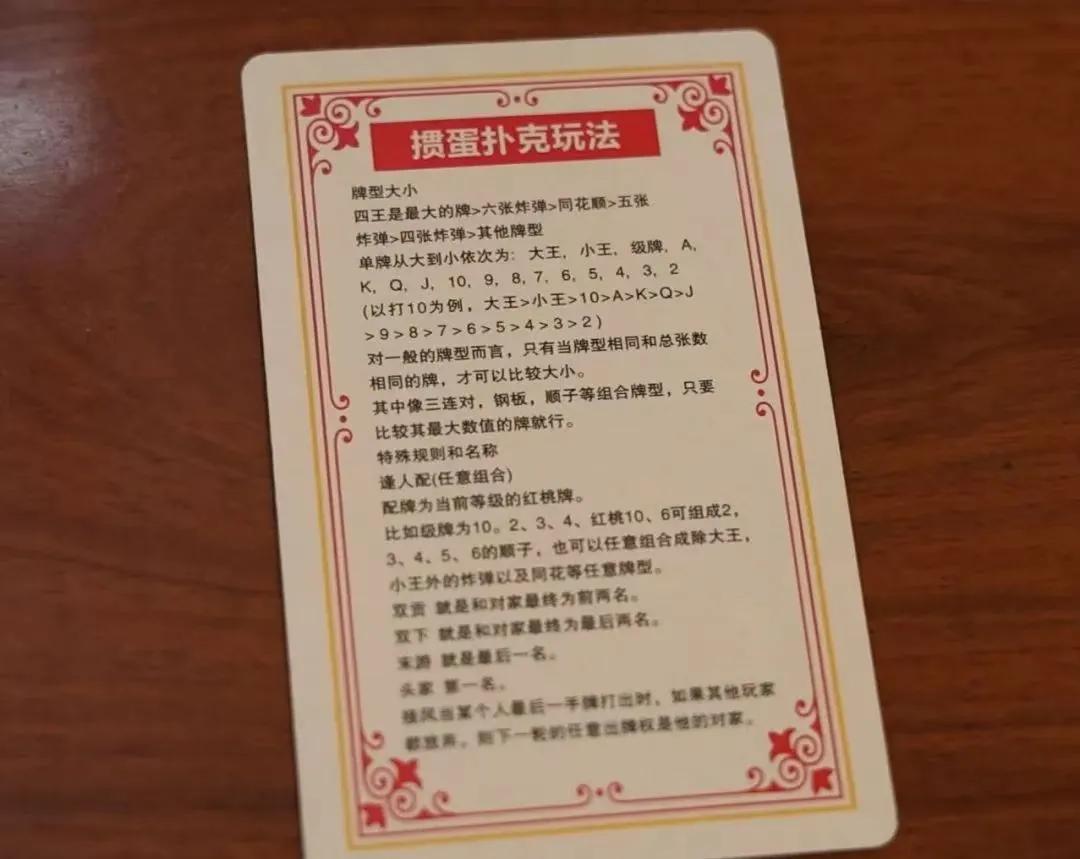 掼蛋扑克玩法
牌型大小
四王是最大的牌>六张炸弹>同花顺>五张
炸弹>四张炸弹>其他牌型
单牌从大到小依次为：大王，小王，级牌，A，
K，Q，J，10，9，8，7，6，5，4，3，2
(以打10为例，大王>小王>10>A>K>Q>J
>9>8>7>6>5>4>3>2)
对一般的牌型而言，只有当牌型相同和总张数
相同的牌，才可以比较大小。
其中像三连对，钢板，顺子等组合牌型，只要
比较其最大数值的牌就行。
特殊规则和名称
逢人配(任意组合)
配牌为当前等级的红桃牌。
比如级牌为10。2、3、4、红桃10、6可组成2，
3、4、5、6的顺子，也可以任意组合成除大王，
小王外的炸弹以及同花等任意牌型。
双贡 就是和对家最终为前两名。
双下 就是和对家最终为最后两名。
末游 就是最后一名。
头家 第一名。
接风当某个人最后一手牌打出时，如果其他玩家
都放弃，则下一轮的任意出牌权是他的对家。